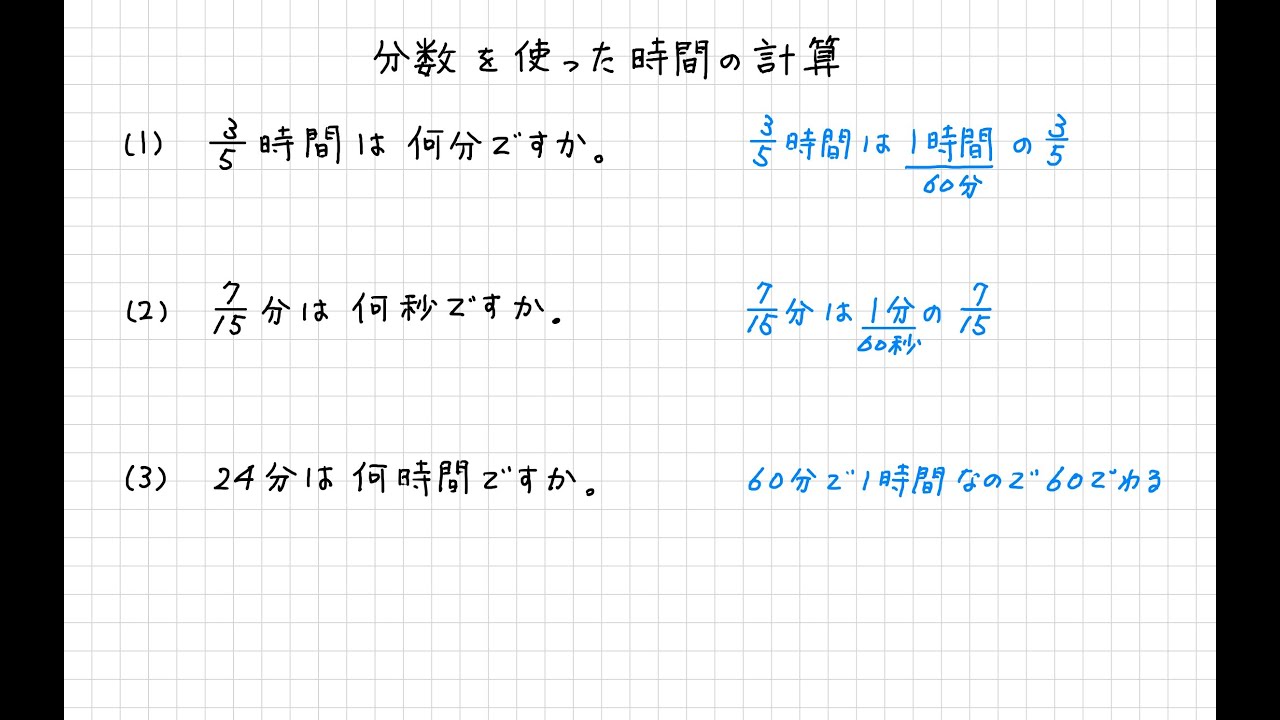 分数を使った時間の計算
(1) 3/5 時間は 何分ですか。 3/5 時間は 1時間 の 3/5
60分
(2) 7/15 分は 何秒ですか. 7/15 分は 1分 の 7/15
60秒
(3) 24分は 何時間ですか. 60分で1時間なので60でわる